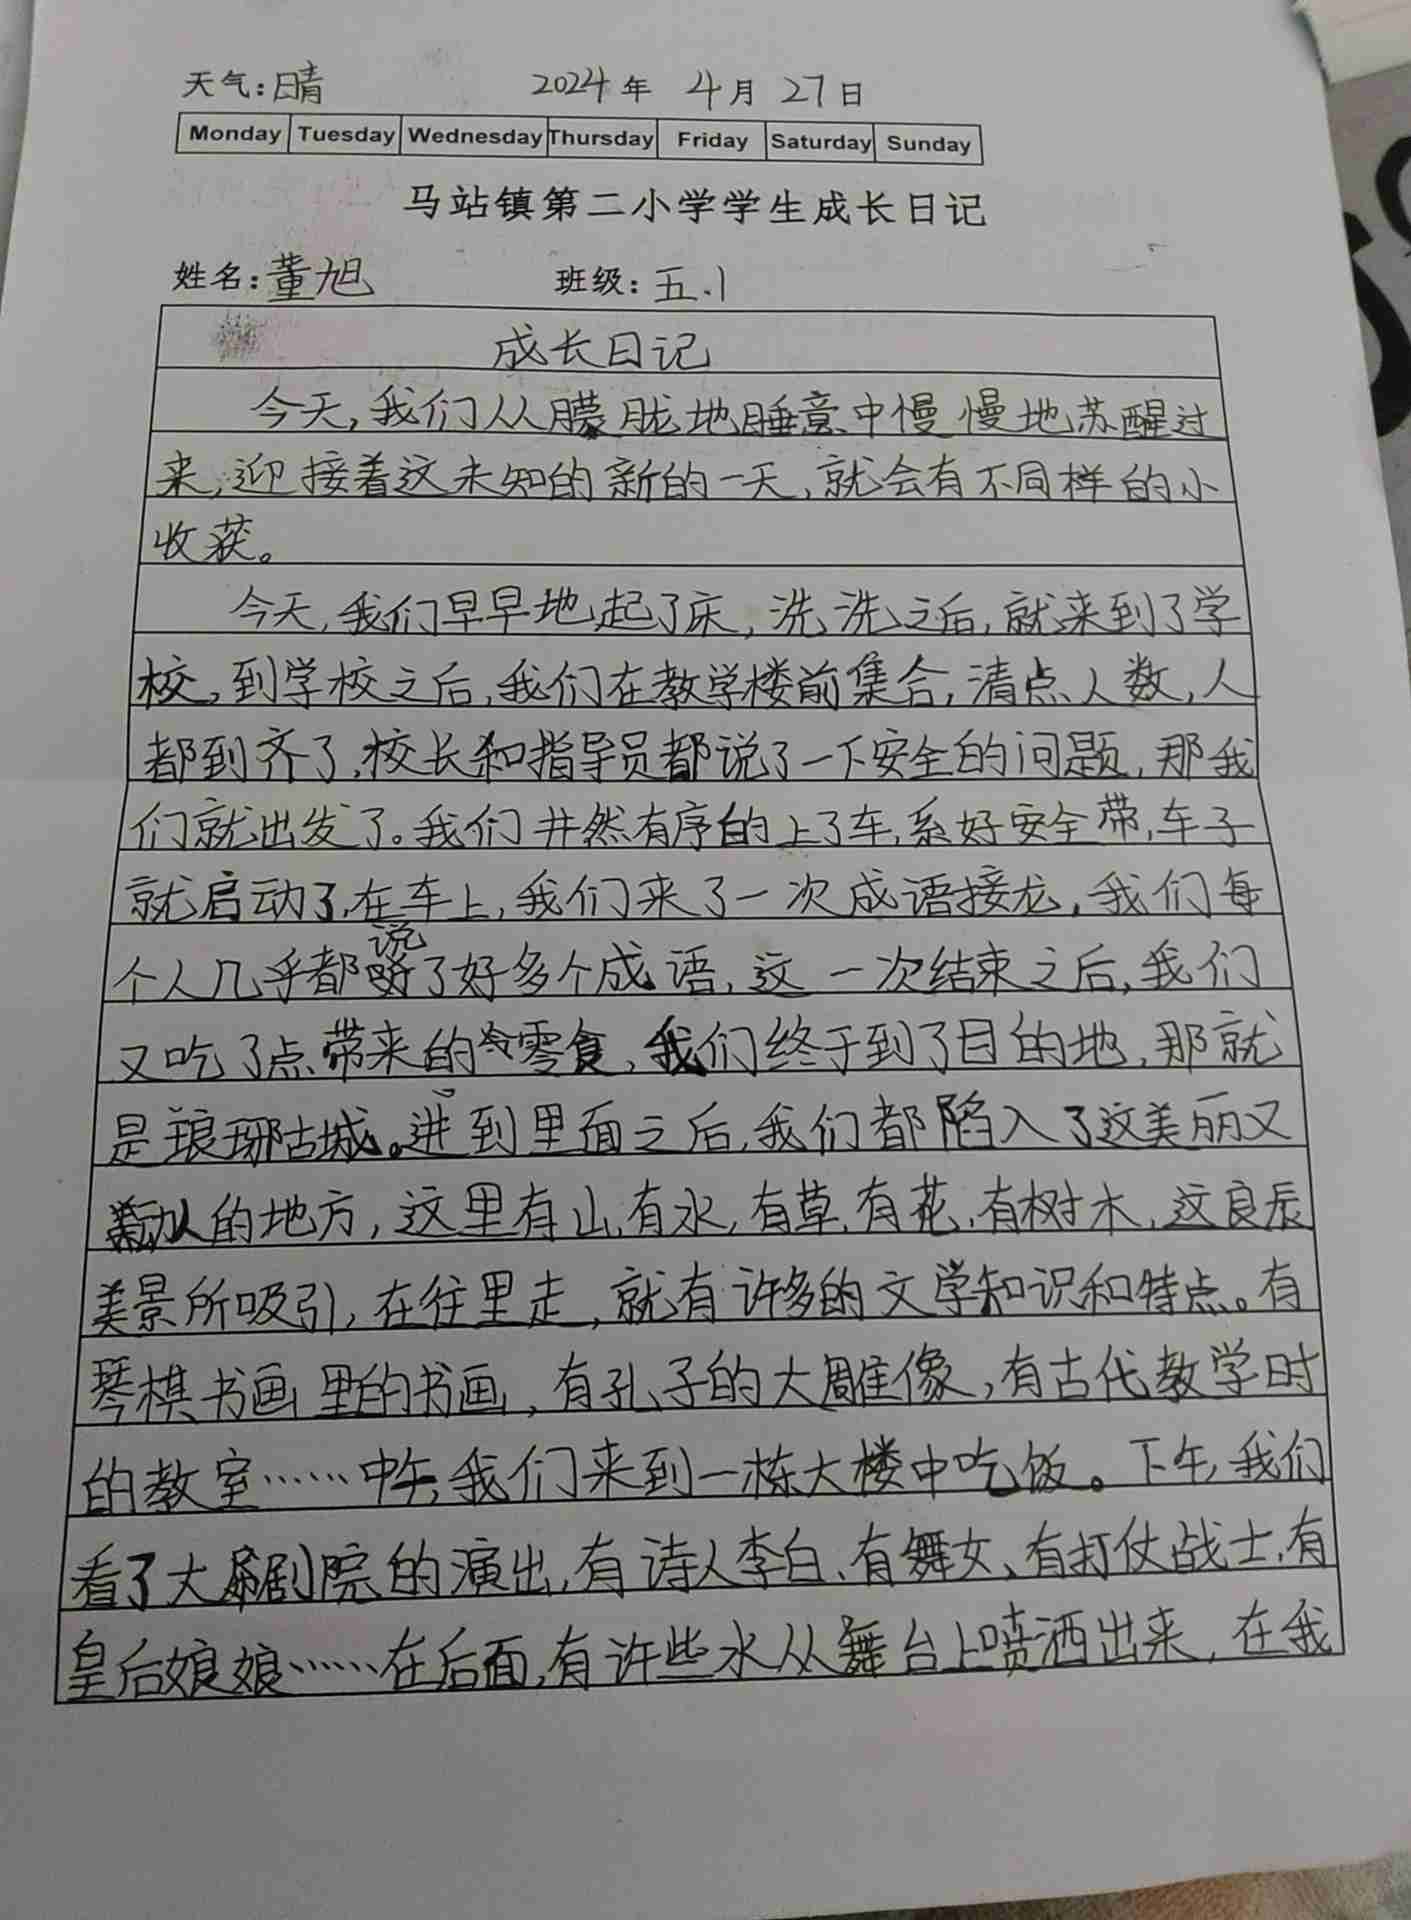 天气:晴 2024年 4月 27日
Monday Tuesday Wednesday Thursday Friday Saturday Sunday
马站镇第二小学学生成长日记
姓名:董旭 班级:五.1
成长日记
今天,我们从朦胧地睡意中慢慢地苏醒过
来,迎接着这未知的新的一天,就会有不同样的小
收获。
今天,我们早早地起了床,洗洗之后,就来到了学
校,到学校之后,我们在教学楼前集合,清点人数,人
都到齐了,校长和指导员都说了一下安全的问题,那我
们就出发了。我们井然有序的上了车,系好安全带,车子
就启动了,在车上,我们来了一次成语接龙,我们每
个人几乎都说了好多个成语,这一次结束之后,我们
又吃了点带来的零食,我们终于到了目的地,那就
是琅琊古城。进到里面之后,我们都陷入了这美丽又
动人的地方,这里有山,有水,有草,有花,有树木,这良辰
美景所吸引,在往里走,就有许多的文学知识和特点。有
琴棋书画里的书画,有孔子的大雕像,有古代教学时
的教室……中午,我们来到一栋大楼中吃饭。下午,我们
看了大剧院的演出,有诗人李白、有舞女、有打仗战士,有
皇后娘娘……在后面,有许些水从舞台上喷洒出来,在我